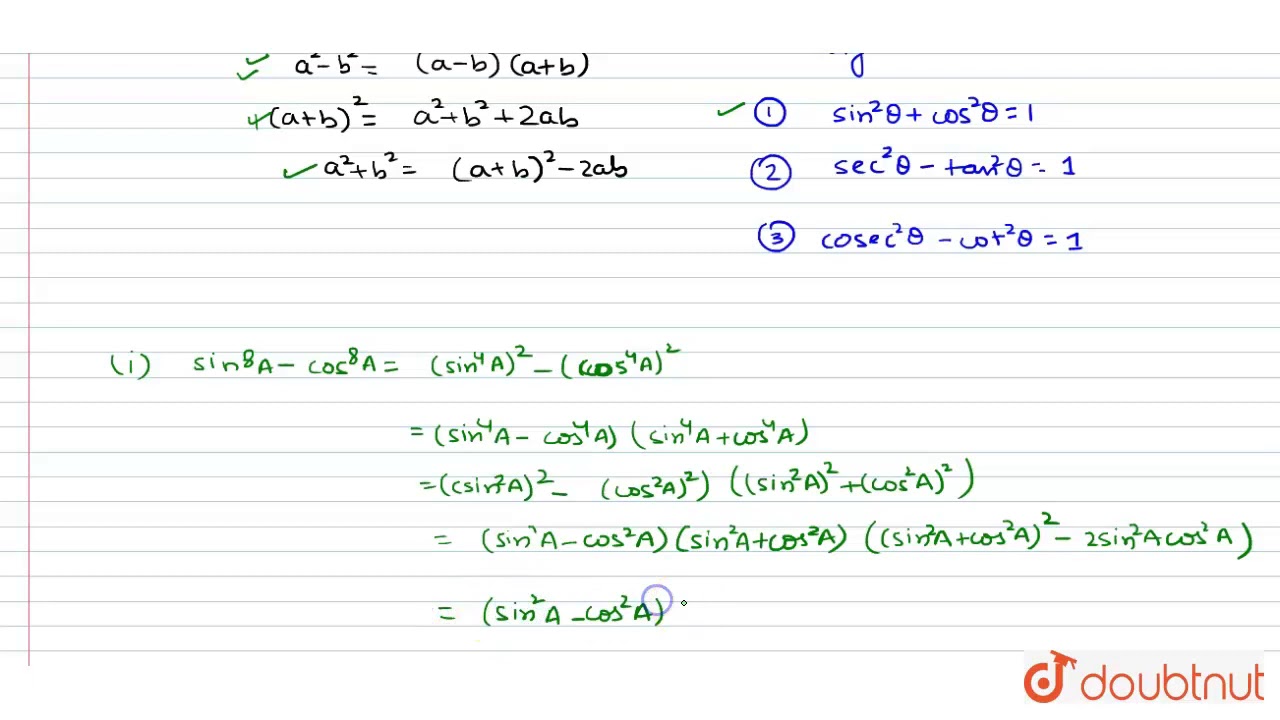 a²-b² = (a-b)(a+b)
(a+b)² = a²+b²+2ab
a²+b² = (a+b)²-2ab
① sin²θ + cos²θ = 1
② sec²θ - tan²θ = 1
③ cosec²θ - cot²θ = 1
(i) sin⁸A - cos⁸A = (sin⁴A)² - (cos⁴A)²
= (sin⁴A - cos⁴A) (sin⁴A + cos⁴A)
= ((sin²A)² - (cos²A)²) ((sin²A)² + (cos²A)²)
= (sin²A - cos²A) (sin²A + cos²A) ((sin²A + cos²A)² - 2sin²A cos²A)
= (sin²A - cos²A)
doubtnut